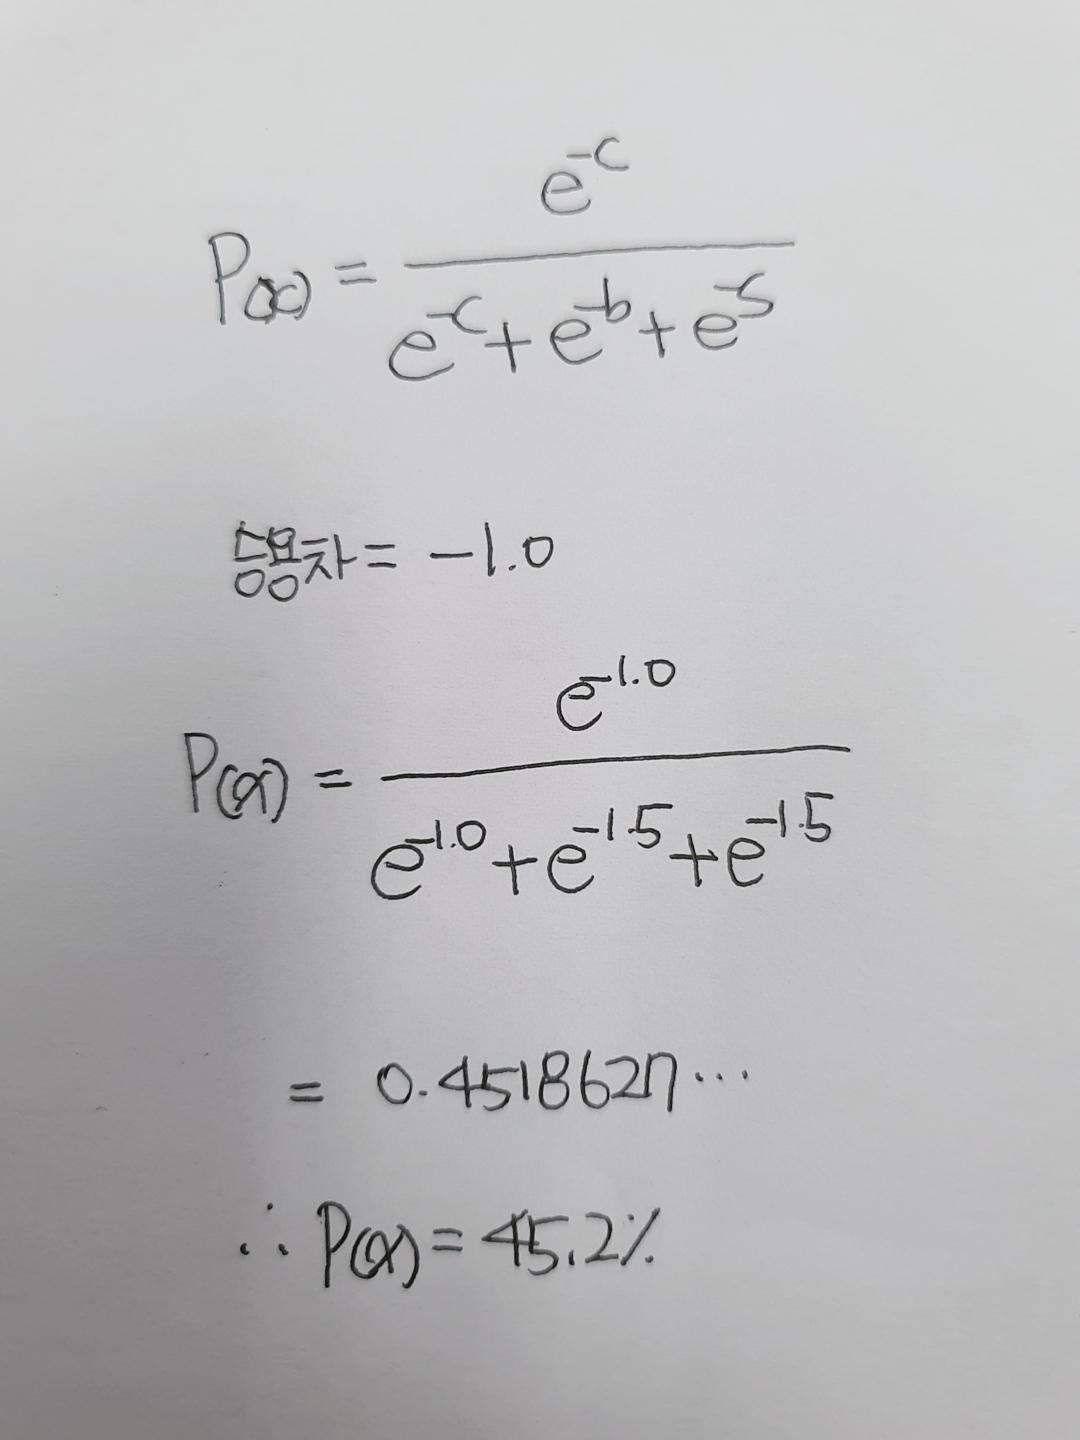 P(x) = e^-c / (e^-c + e^-b + e^-s)
승용차 = -1.0
P(x) = e^-1.0 / (e^-1.0 + e^-1.5 + e^-1.5)
= 0.4518627...
∴ P(x) = 45.2%